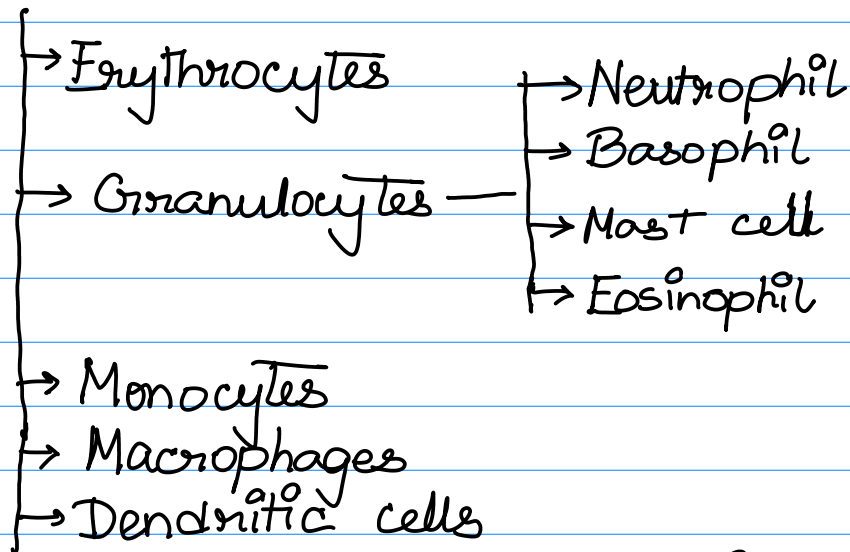 → Erythrocytes
→ Granulocytes —
→ Neutrophil
→ Basophil
→ Mast cell
→ Eosinophil
→ Monocytes
→ Macrophages
→ Dendritic cells